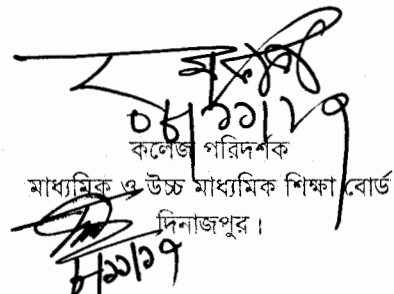 ০৮/১১/১৭
কলেজ পরিদর্শক
মাধ্যমিক ও উচ্চ মাধ্যমিক শিক্ষা বোর্ড
দিনাজপুর।
৮/১১/১৭